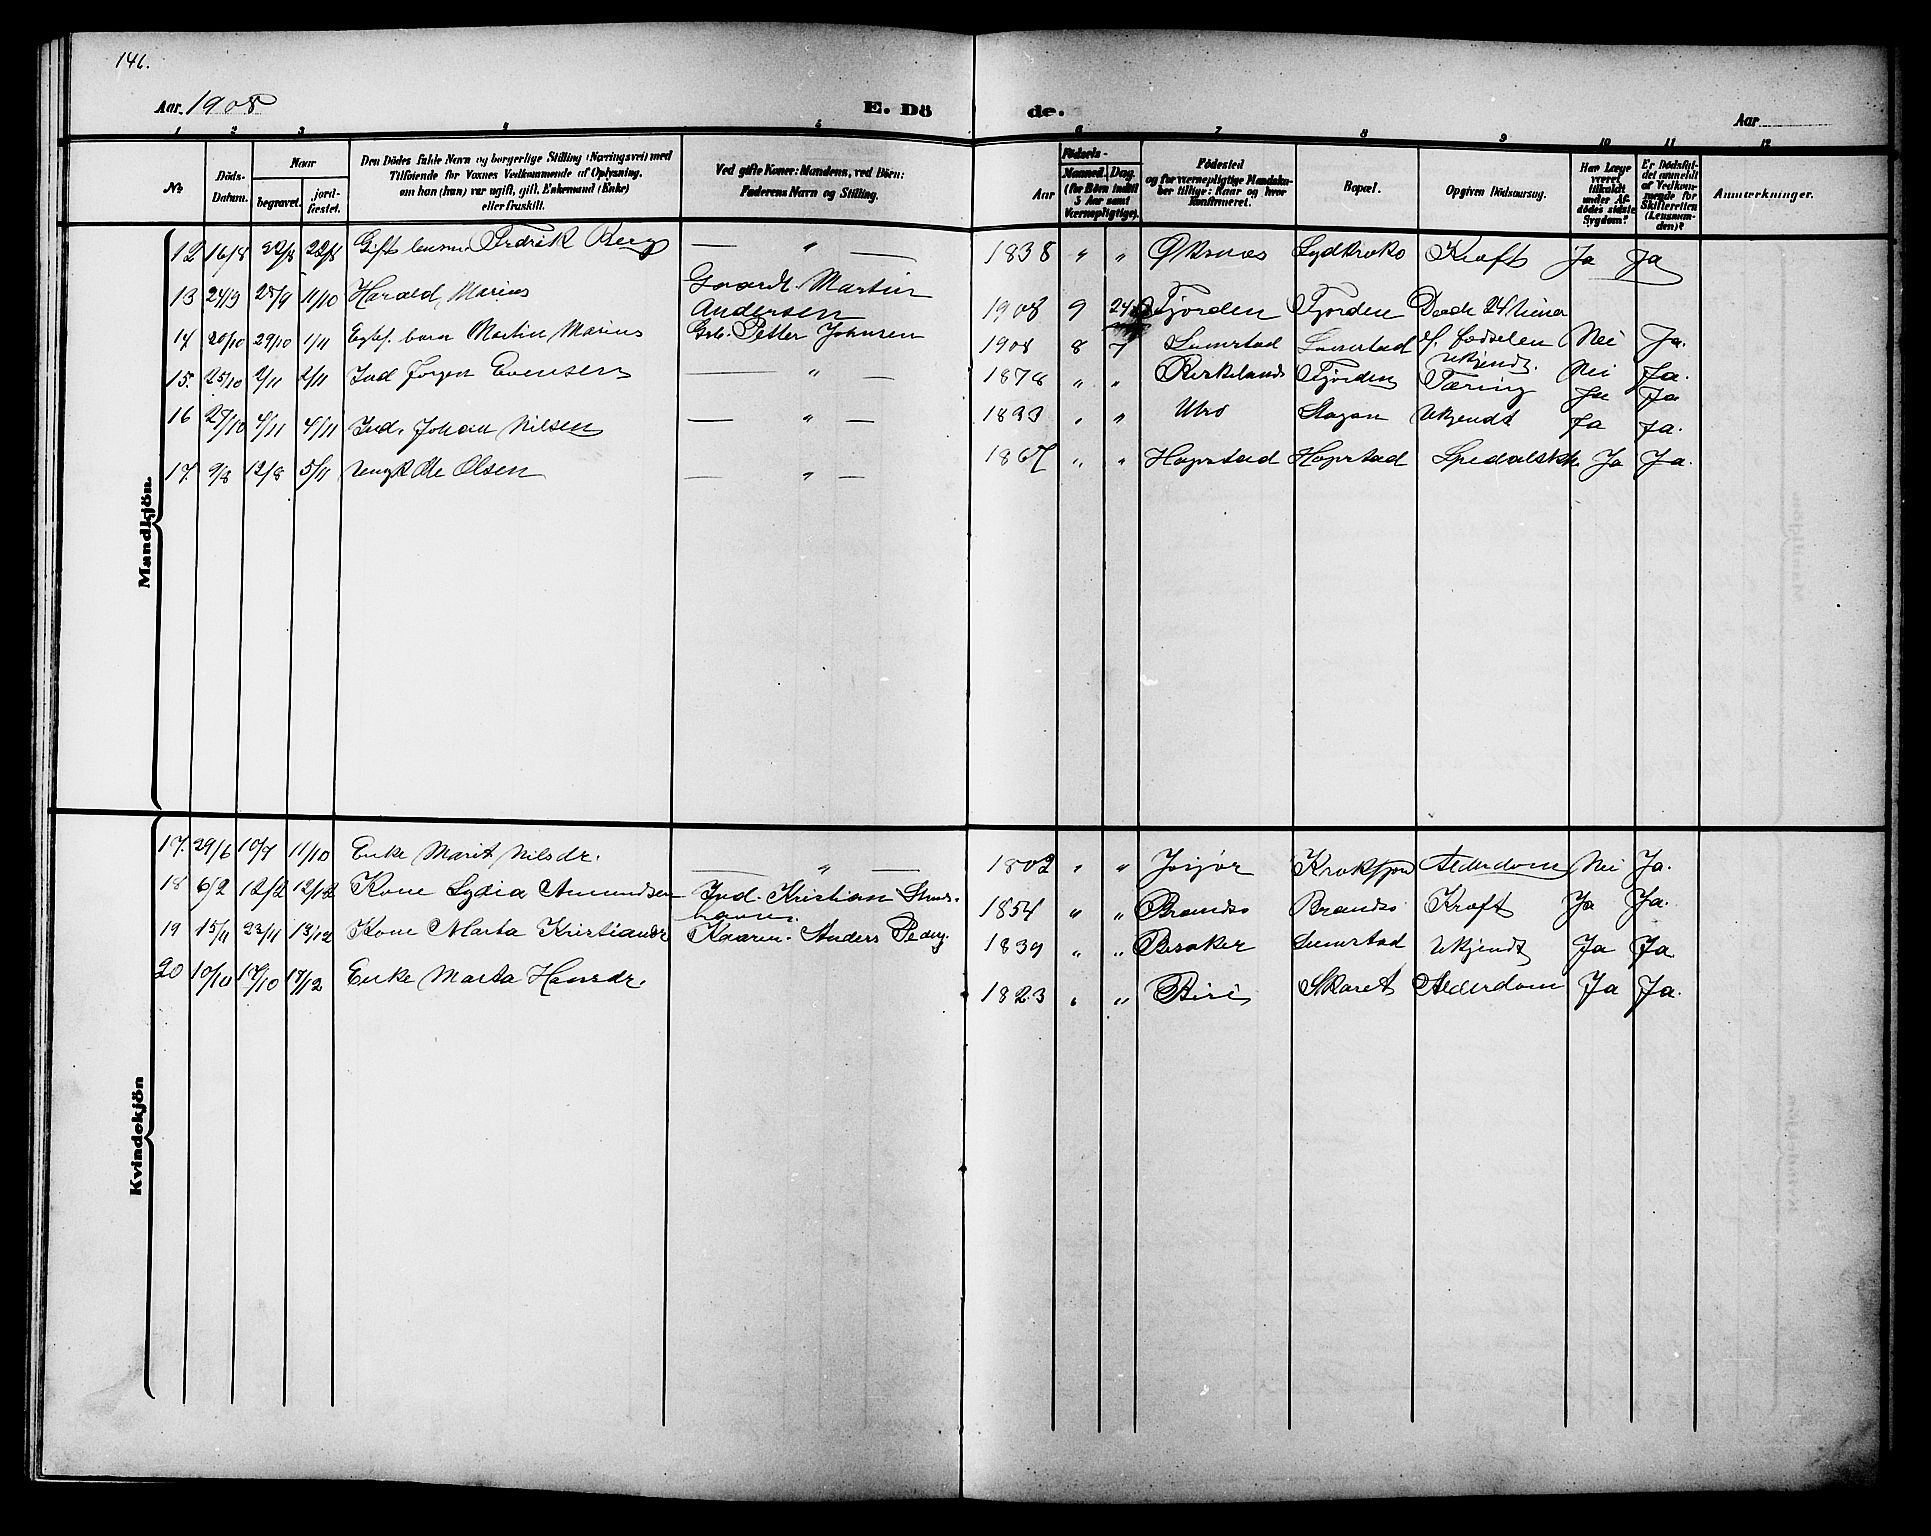 146.
Aar 1908
E. Dö de.
Aar
1 2 3 4 5 6 7 8 9 10 11 12
No
Döds-Datum.
Naar
begravet.
jord-fæstet.
Den Dödes fulde Navn og borgerlige Stilling (Næringsvei) med
Tilföiende for Voxnes Vedkommende af Oplysning,
om han (hun) var ugift, gift, Enkemand (Enke)
eller fraskilt.
Ved gifte Koner: Mandens, ved Börn:
Faderens Navn og Stilling.
Födsels-
Aar
Maaned. Dag.
(for Börn indtil
5 Aar samt
Værnepligtige).
Födested
og for værnepligtige Mandska-
ber tillige: Naar og hvor
konfirmeret.
Bopæl.
Opgiven Dödsaarsag.
Har Læge
været
tilkaldt
under Af-
dödes sidste
Sygdom?
Er Dödsfal-
det anmeldt
af Vedkom-
mende for
Skifteretten
(Lensman-
den)?
Anmærkninger.
Mandkjön.
12 16/8 22/8 22/8 Gift Fredrik Berg — " — 1838 " " Øksnes Kræft Ja Ja
13 24/9 25/9 11/10 Harald Marius Martin
Andersen 1908 9 24 Fjorden Fjorden Døde 24 Timer
14 20/10 29/10 1/11 Egtef. barn Martin Marius Petter Johnsen 1908 8 7 Lunestad Lunestad ef. fødselen Nei Ja.
Ukjendt.
15. 25/10 2/11 2/11 Ind Jørgen Evensen — " — 1878 " " Kirkeland Fjorden Tæring Nei Ja.
Ja Ja
16 27/10 4/11 4/11 Ind. Johan Nilsen — " — 1833 " " Skogan Ukjendt Ja Ja.
17. 9/8 12/8 5/11 Ungk Ole Olsen — " — 1867 " " Hopstad Hopstad Spedalskh. Ja Ja.
Kvindekjön
17. 29/6 10/7 11/10 Enke Marit Nilsdr. — " — 1802 " " Alderdom Nei Ja.
18 6/2 12/2 12/12 Kone Lydia Amundsen Ind. Kristian
1854 " " Brandsø Brandsø Kræft Ja Ja.
19 15/11 23/11 13/12 Kone Marta Kristiansdr Kaaren. Anders Peder. 1839 " " Besaker Lunestad Ukjendt Ja Ja.
20 10/10 17/10 17/12 Enke Marta Hansdr. 1823 " " Biri Skaret Alderdom Ja Ja.